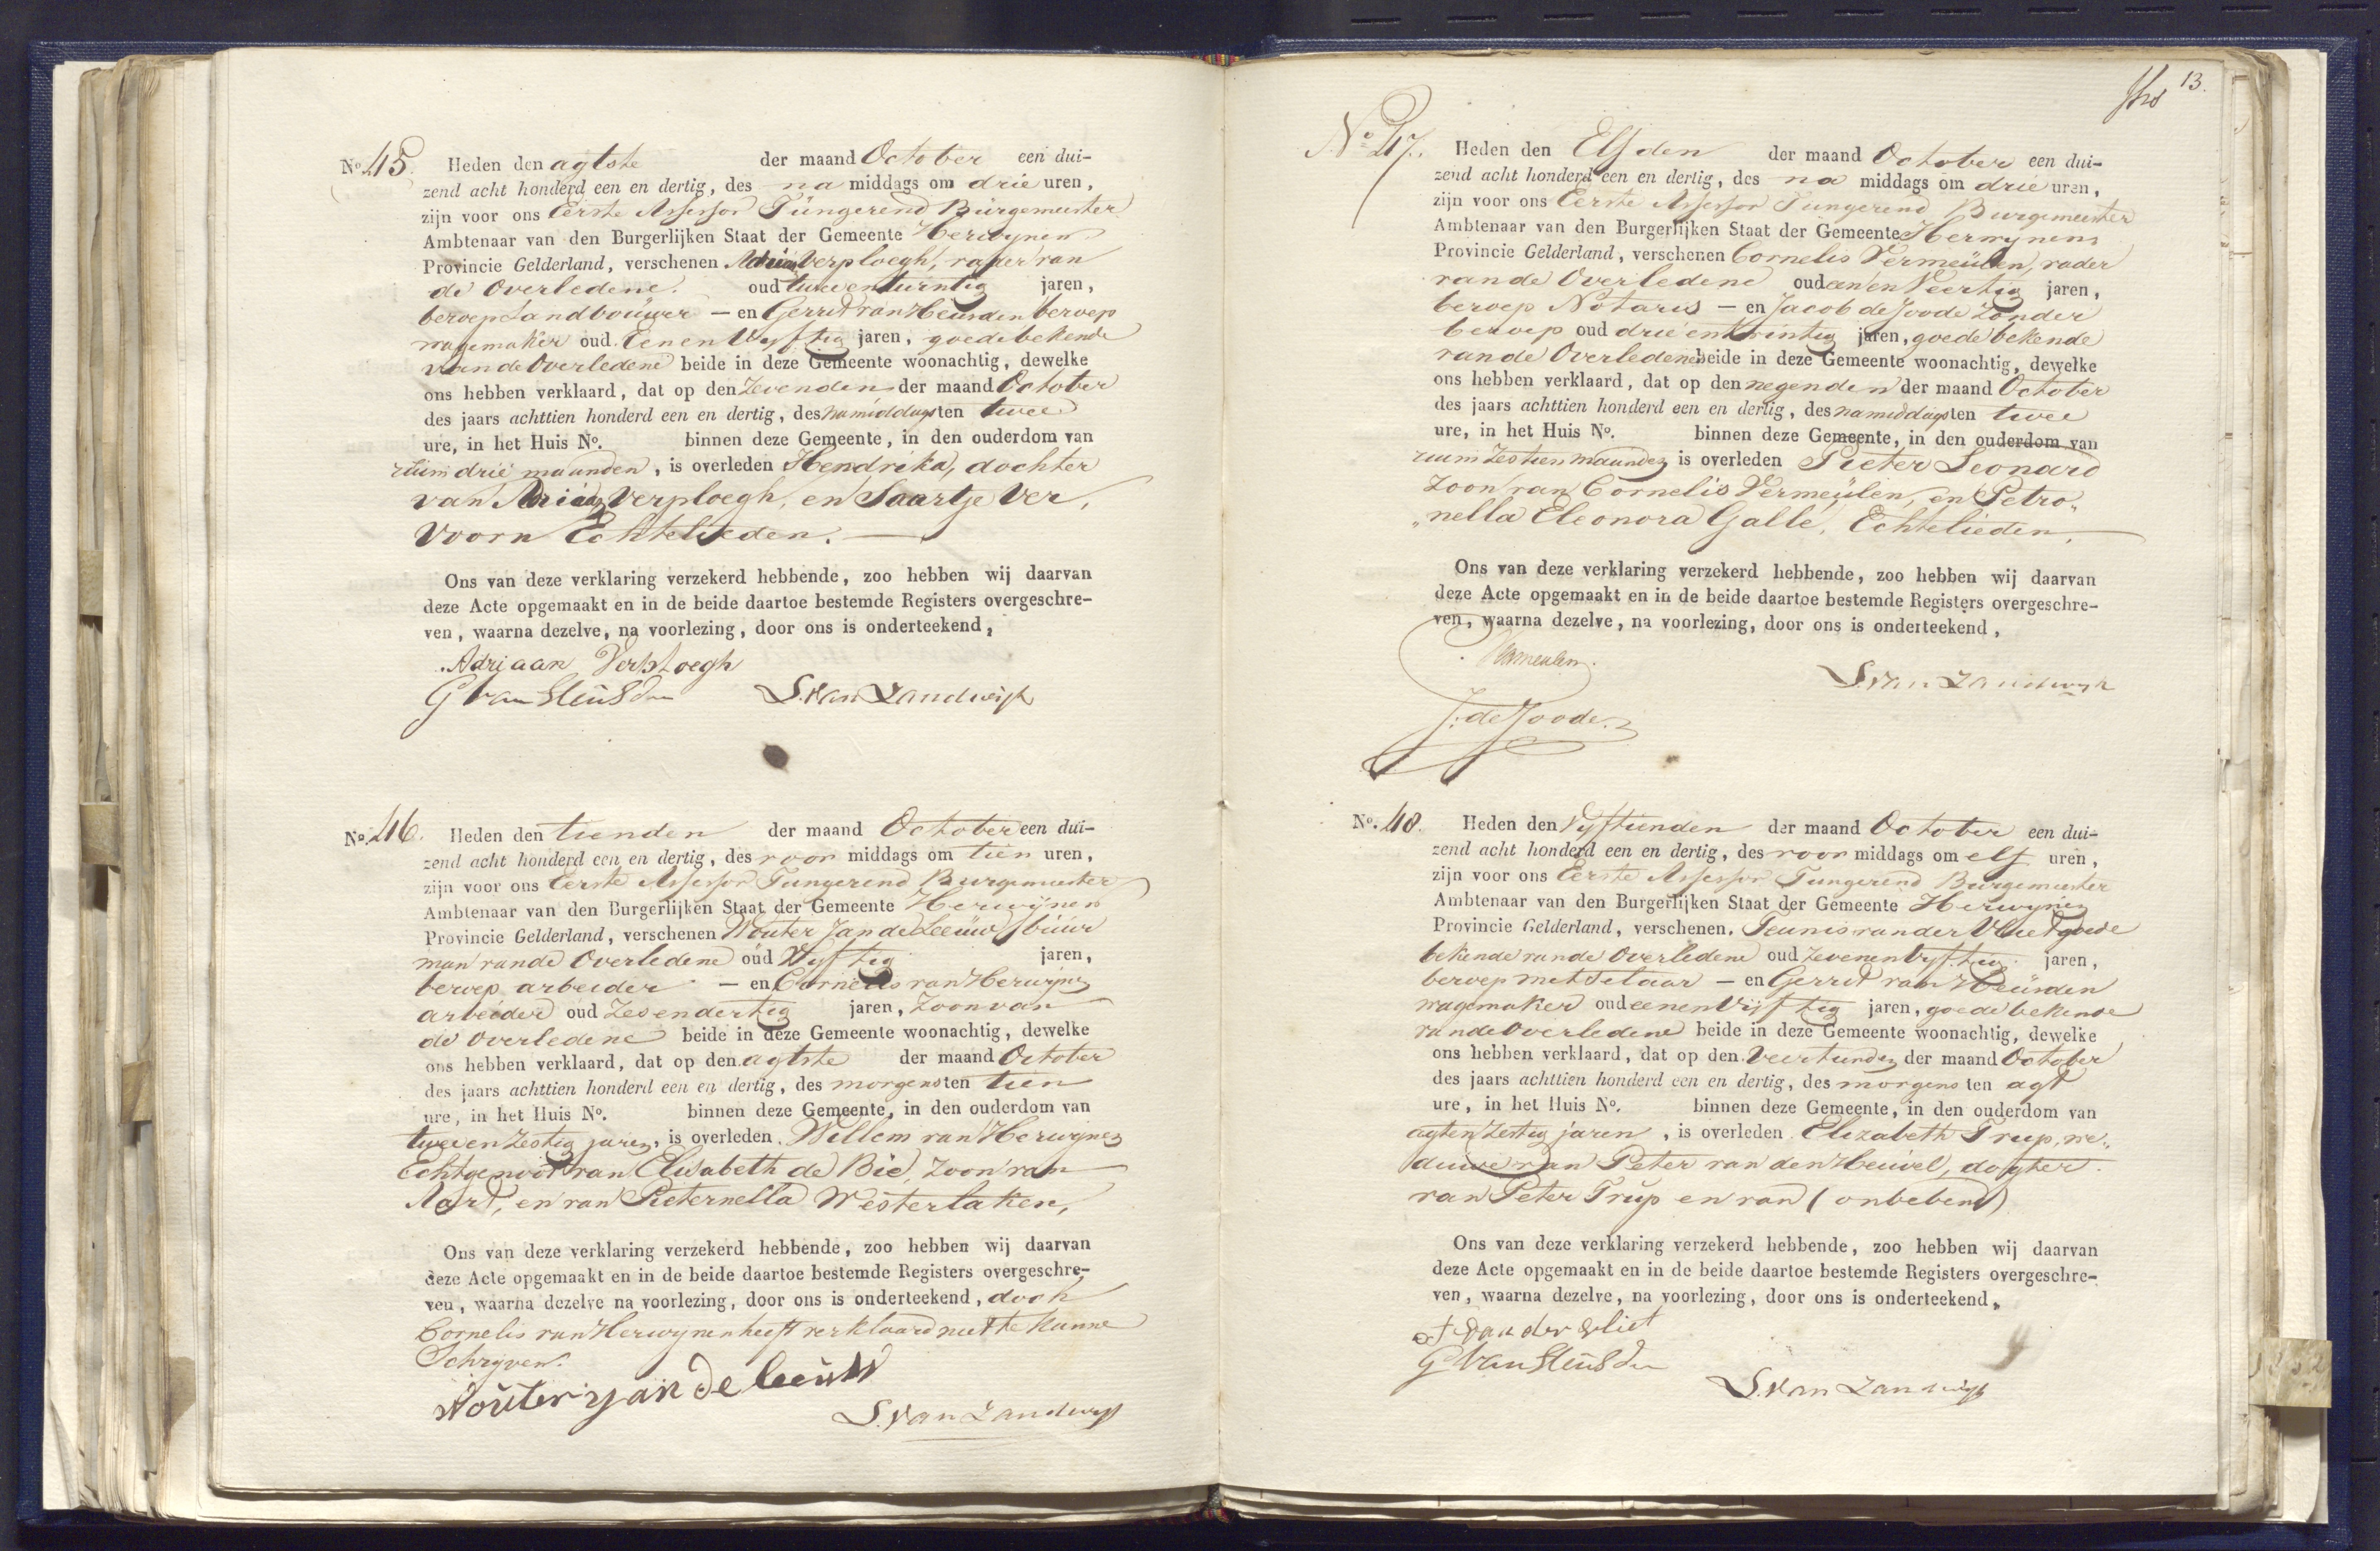 No. 45. Heden den agtste der maand October een dui-
zend acht honderd een en dertig, des na middags om drie uren,
zijn voor ons Eerste Assessor Füngerend Bürgemeester
Ambtenaar van den Burgerlijken Staat der Gemeente Herwynen
Provincie Gelderland, verschenen Adriaan Verploegh, vader van
de Overledene. oud twee en twintig jaren,
beroep Landbouwer — en Gerrit van Heusden beroep
wagemaker oud Een en Vyftig jaren, goede bekende
van de Overledene beide in deze Gemeente woonachtig, dewelke
ons hebben verklaard, dat op den Zevenden der maand October
des jaars achttien honderd een en dertig, des namiddags ten twee
ure, in het Huis No. binnen deze Gemeente, in den ouderdom van
ruim drie maanden, is overleden Hendrika, dochter
van Adriaan Verploegh, en Saartje Ver,
Voorn Echtelieden. —
Ons van deze verklaring verzekerd hebbende, zoo hebben wij daarvan
deze Acte opgemaakt en in de beide daartoe bestemde Registers overgeschre-
ven, waarna dezelve, na voorlezing, door ons is onderteekend,
Adrjaan Verploegh
G van Heusden S. van Zandwijk
No. 46. Heden den tienden der maand October een dui-
zend acht honderd een en dertig, des voor middags om tien uren,
zijn voor ons Eerste Assessor Fungerend Burgemeester
Ambtenaar van den Burgerlijken Staat der Gemeente Herwijnen
Provincie Gelderland, verschenen Wouter Jan de Leeuw buur
man van de Overledene oud Vyftig jaren,
beroep arbeider — en Cornelis van Herwijnen
arbeider oud Zes en dertig jaren, Zoon van
de Overledene beide in deze Gemeente woonachtig, dewelke
ons hebben verklaard, dat op den agtste der maand October
des jaars achttien honderd een en dertig, des morgens ten tien
ure, in het Huis No. binnen deze Gemeente, in den ouderdom van
twee en zestig jaren, is overleden Willem van Herwijnen
Echtgenoot van Elisabeth de Bie, Zoon van
Aart, en van Pieternella Westerlaken,
Ons van deze verklaring verzekerd hebbende, zoo hebben wij daarvan
deze Acte opgemaakt en in de beide daartoe bestemde Registers overgeschre-
ven, waarna dezelve na voorlezing, door ons is onderteekend, doch
Cornelis van Herwynen heeft verklaard niet te kunne
Schryven.
Wouter jan de leeuw
S. van Zandwyk
13.
No. 47. Heden den Elfden der maand October een dui-
zend acht honderd een en dertig, des na middags om drie uren,
zijn voor ons Eerste Assessor Fungerend Burgemeester
Ambtenaar van den Burgerlijken Staat der Gemeente Herwynen
Provincie Gelderland, verschenen Cornelis Vermeülen, vader
van de Overledene oud een en Veertig jaren,
beroep Notaris — en Jacob de Joode Zonder
beroep oud drie en twintig jaren, goede bekende
van de Overledene beide in deze Gemeente woonachtig, dewelke
ons hebben verklaard, dat op den negenden der maand October
des jaars achttien honderd een en dertig, des namiddags ten twee
ure, in het Huis No. binnen deze Gemeente, in den ouderdom van
ruim Zestien maanden is overleden Pieter Leonard
Zoon van Cornelis Vermeülen, en Petro„
„nella Eleonora Gallé, Echtelieden.
Ons van deze verklaring verzekerd hebbende, zoo hebben wij daarvan
deze Acte opgemaakt en in de beide daartoe bestemde Registers overgeschre-
ven, waarna dezelve, na voorlezing, door ons is onderteekend,
Vermeulen.
S. van Zandwyk
J: de Joode.
No. 48. Heden den Vyftienden der maand October een dui-
zend acht honderd een en dertig, des voor middags om elf uren,
zijn voor ons Eerste Assessor Fungerend Burgemeester
Ambtenaar van den Burgerlijken Staat der Gemeente Herwynen
Provincie Gelderland, verschenen. Teunis van der Vliet goede
bekende van de Overledene oud Zeven en Vyftig jaren,
beroep metselaar — en Gerrit van Heüsden
wagemaker oud een en Vijftig jaren, goede bekende
van de Overledene beide in deze Gemeente woonachtig, dewelke
ons hebben verklaard, dat op den Veertienden der maand October
des jaars achttien honderd een en dertig, des morgens ten agt
ure, in het Huis No. binnen deze Gemeente, in den ouderdom van
agt en Zestig jaren, is overleden Elizabeth Trup, we„
duwe van Peter van den Heuvel, dogter
van Peter Trup en van (onbekend)
Ons van deze verklaring verzekerd hebbende, zoo hebben wij daarvan
deze Acte opgemaakt en in de beide daartoe bestemde Registers overgeschre-
ven, waarna dezelve, na voorlezing, door ons is onderteekend,
T van der vliet
G van Heusden
S. van Zandwijk